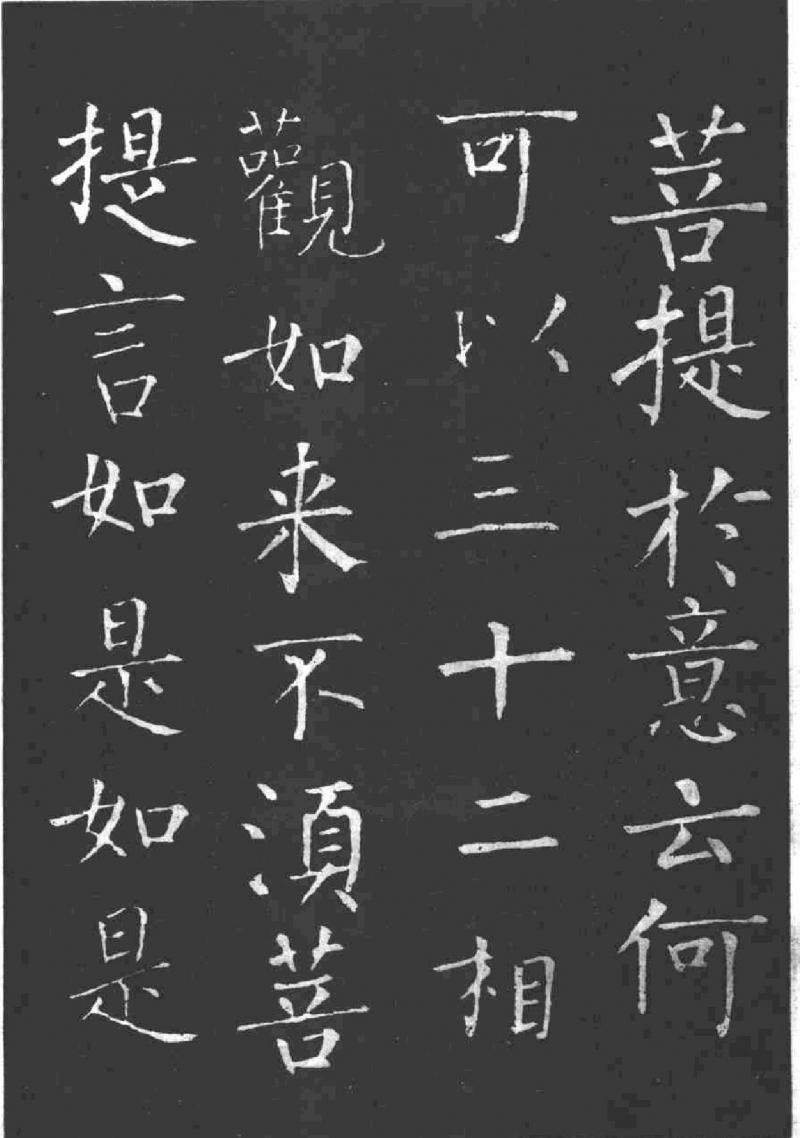 菩提於意云何
可以三十二相
觀如来不湏菩
提言如是如是